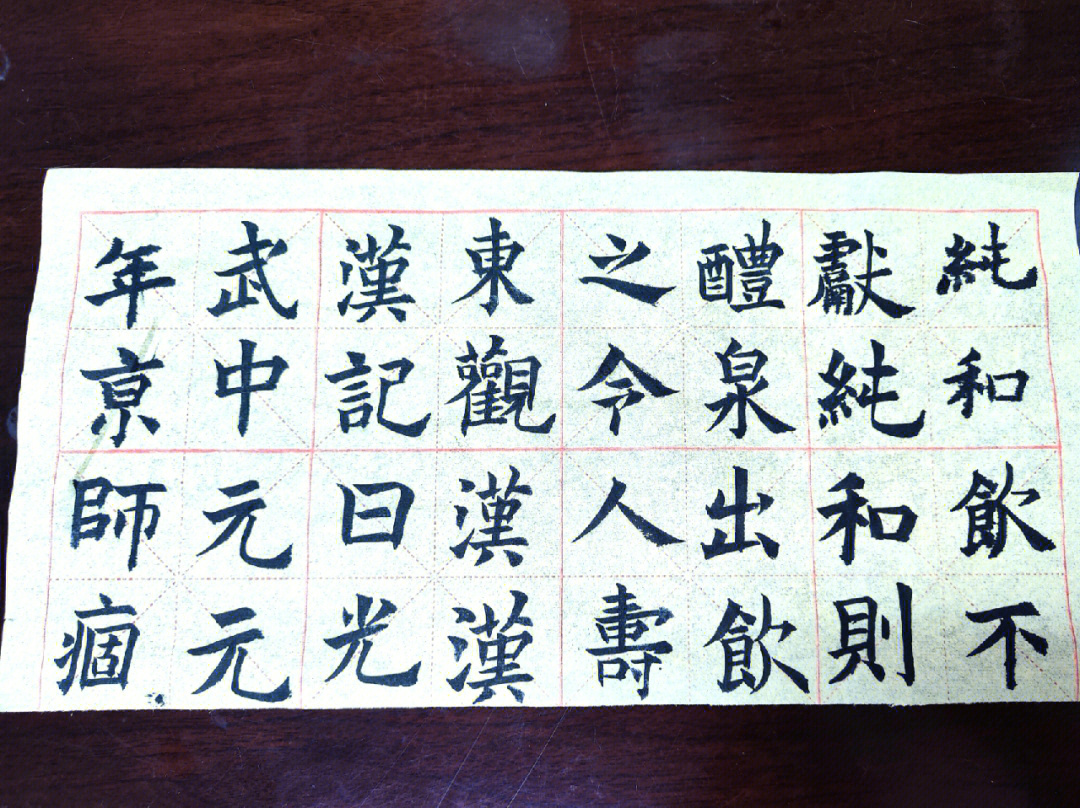 純和飲不
獻純和則
醴泉出飲
之令人壽
東觀漢漢
漢記曰光
武中元元
年京師痼